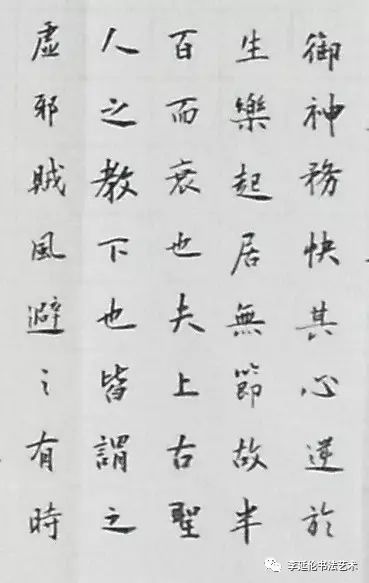 御神務快其心逆於
生樂起居無節故半
百而衰也夫上古聖
人之教下也皆謂之
虛邪賊風避之有時
李延伦书法艺术